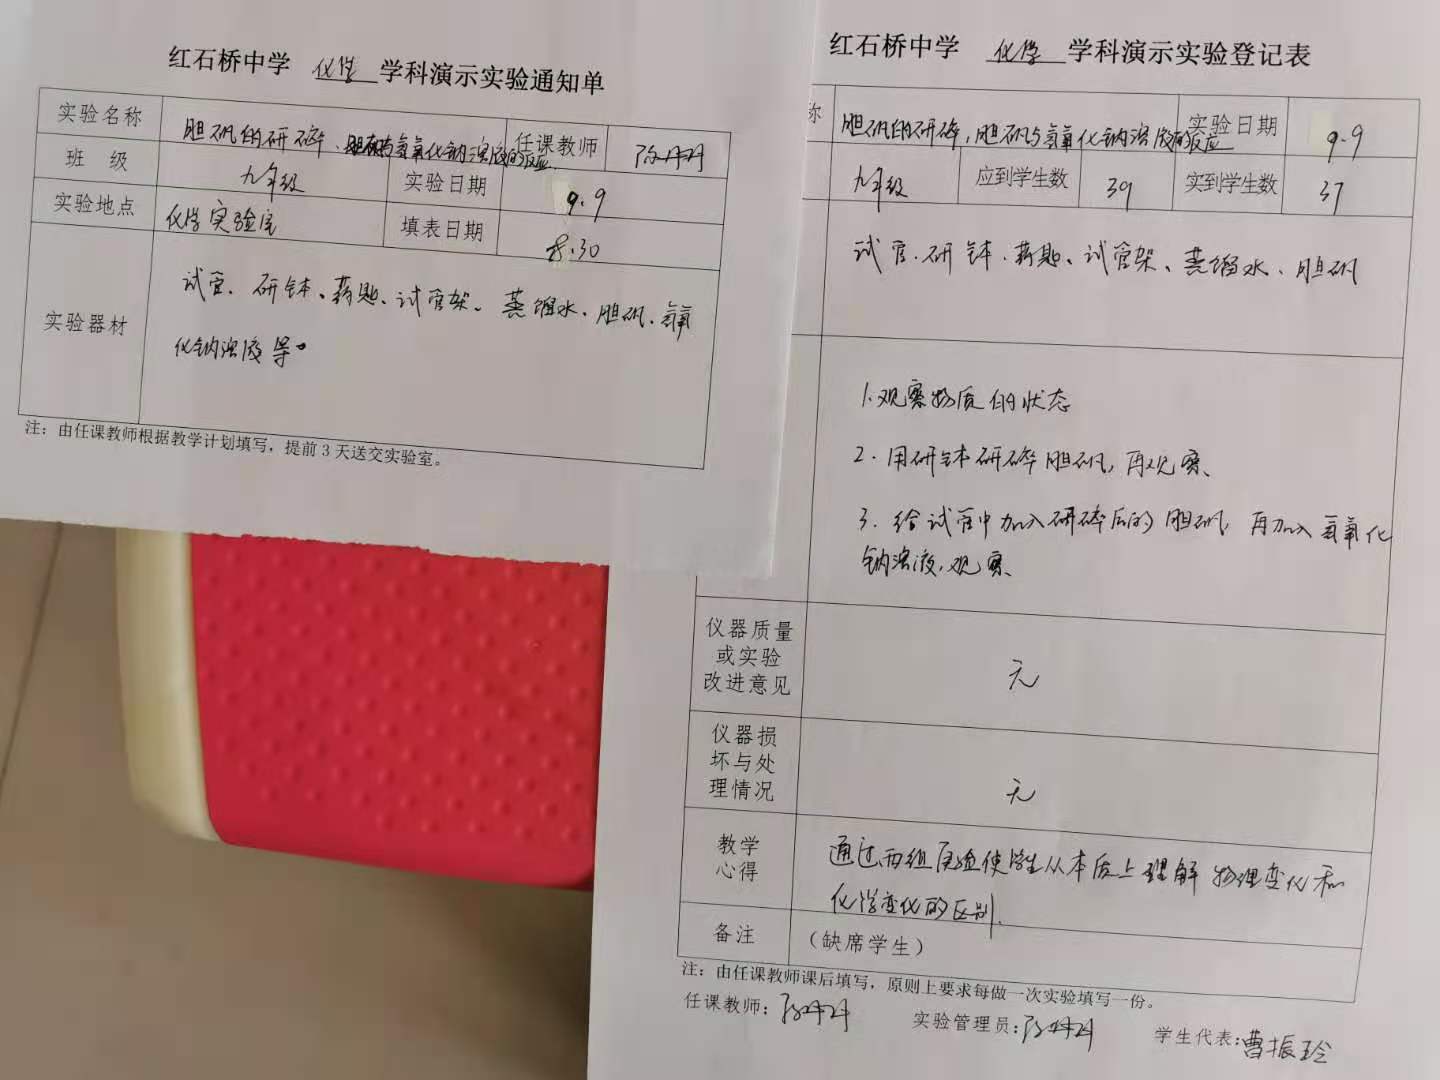 红石桥中学 化学 学科演示实验通知单
实验名称 胆矾的研碎、胆矾与氢氧化钠溶液的反应 任课教师
班 级 九年级 实验日期 9.9
实验地点 化学实验室 填表日期 8.30
实验器材 试管、研钵、药匙、试管架、蒸馏水、胆矾、氢氧
化钠溶液等。
注：由任课教师根据教学计划填写，提前3天送交实验室。
红石桥中学 化学 学科演示实验登记表
称 胆矾的研碎，胆矾与氢氧化钠溶液的反应 实验日期 9.9
九年级 应到学生数 39 实到学生数 37
试管、研钵、药匙、试管架、蒸馏水、胆矾
1.观察物质的状态
2.用研钵研碎胆矾，再观察、
3.给试管中加入研碎后的胆矾，再加入氢氧化
钠溶液，观察、
仪器质量
或实验
改进意见
无
仪器损
坏与处
理情况
无
教学
心得
通过两组实验使学生从本质上理解物理变化和
化学变化的区别.
备注 （缺席学生）
注：由任课教师课后填写，原则上要求每做一次实验填写一份。
任课教师： 实验管理员： 学生代表：曹振玲